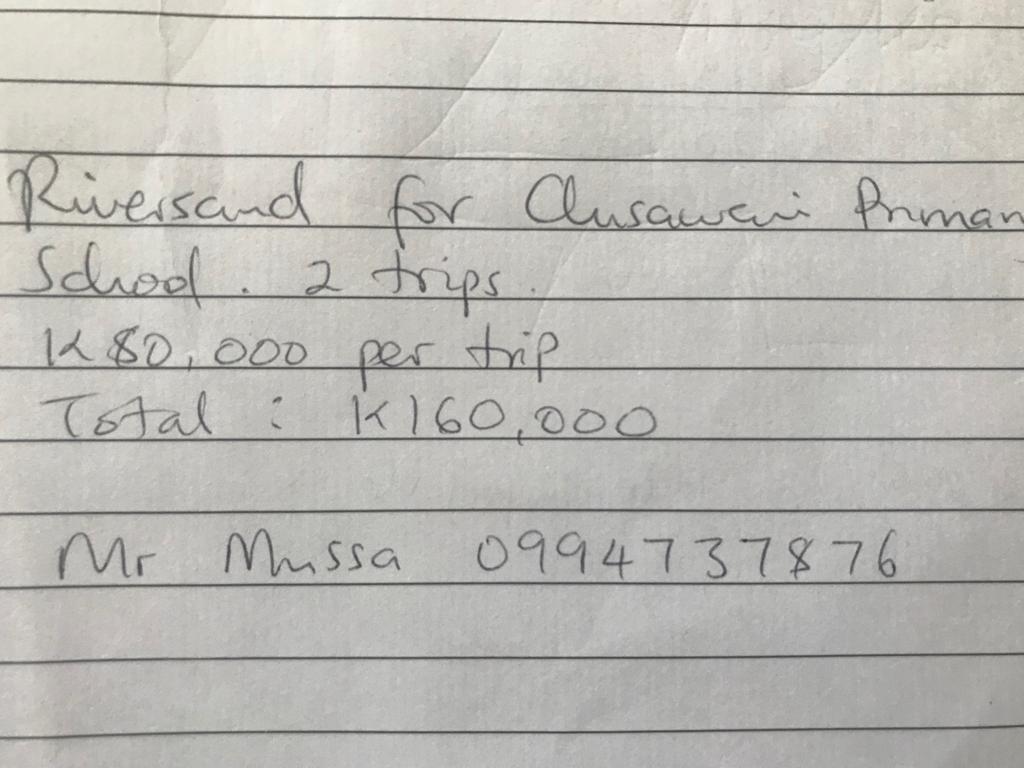 Riversand for Chisawani Primar
School. 2 trips.
K80,000 per trip
Total : K160,000
Mr Mussa 0994737876